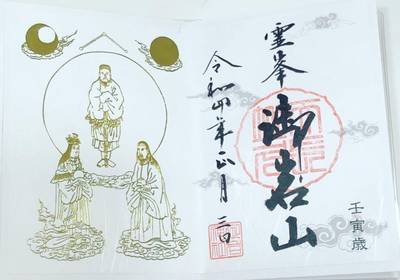 壬寅歳
霊峯
御岩山
令和四年正月三日